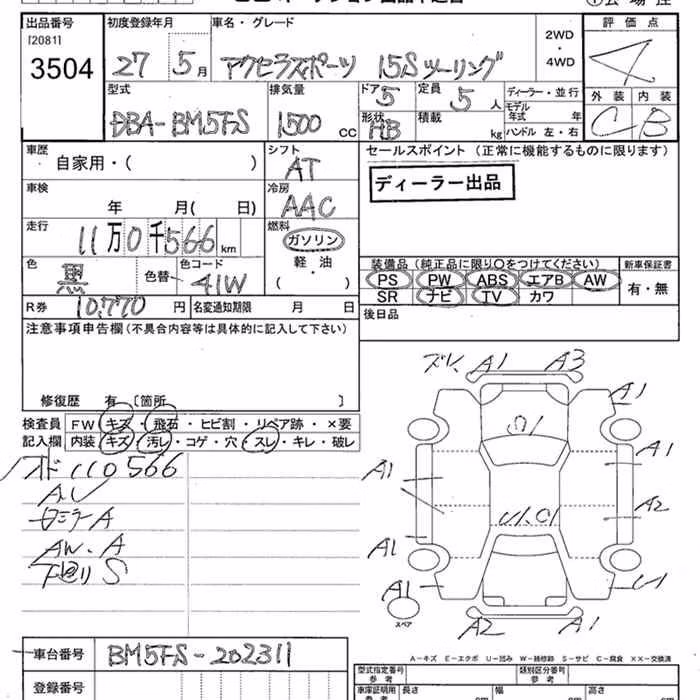 出品番号 初度登録年月 車名・グレード 評価点
[20811]
3504 27 5月 アクセラスポーツ 15Sツーリング 2WD・4WD 4
型式 排気量 ドア 5 定員 5人 ディーラー・並行 外装 内装
DBA-BM5FS 1500 cc 形状 HB 積載 kg モデル年式 年 ハンドル 左・右 C-B
車歴 シフト セールスポイント (正常に機能するものに限ります)
自家用・( ) AT
ディーラー出品
車検 冷房
年 月( 日) AAC
走行 燃料
11万0千566km ガソリン
軽・油
( )
色 黒 色替 色コード 41W
装備品 (純正品に限り○をつけてください) 新車保証書
PS PW ABS エアB AW 有・無
SR ナビ TV カワ
R券 10,770円 名変通知期限 月 日
後日品
注意事項申告欄(不具合内容等は具体的に記入して下さい)
修復歴 有 [箇所 ]
検査員 FW キズ・飛石・ヒビ割・リペア跡・×要
記入欄 内装 キズ・汚レ・コゲ・穴・スレ・キレ・破レ
110566
AW.A
下回りS
A1 A3
A1
A1 A1
A2
A1
A1
スペア
A2 A1
A-キズ E-エクボ U-凹み W-補修跡 S-サビ C-腐食 XX-交換済
車台番号 BM5FS-202311
登録番号
型式指定番号 参考 類別区分番号 参考
車庫証明用 長さ 幅 高さ